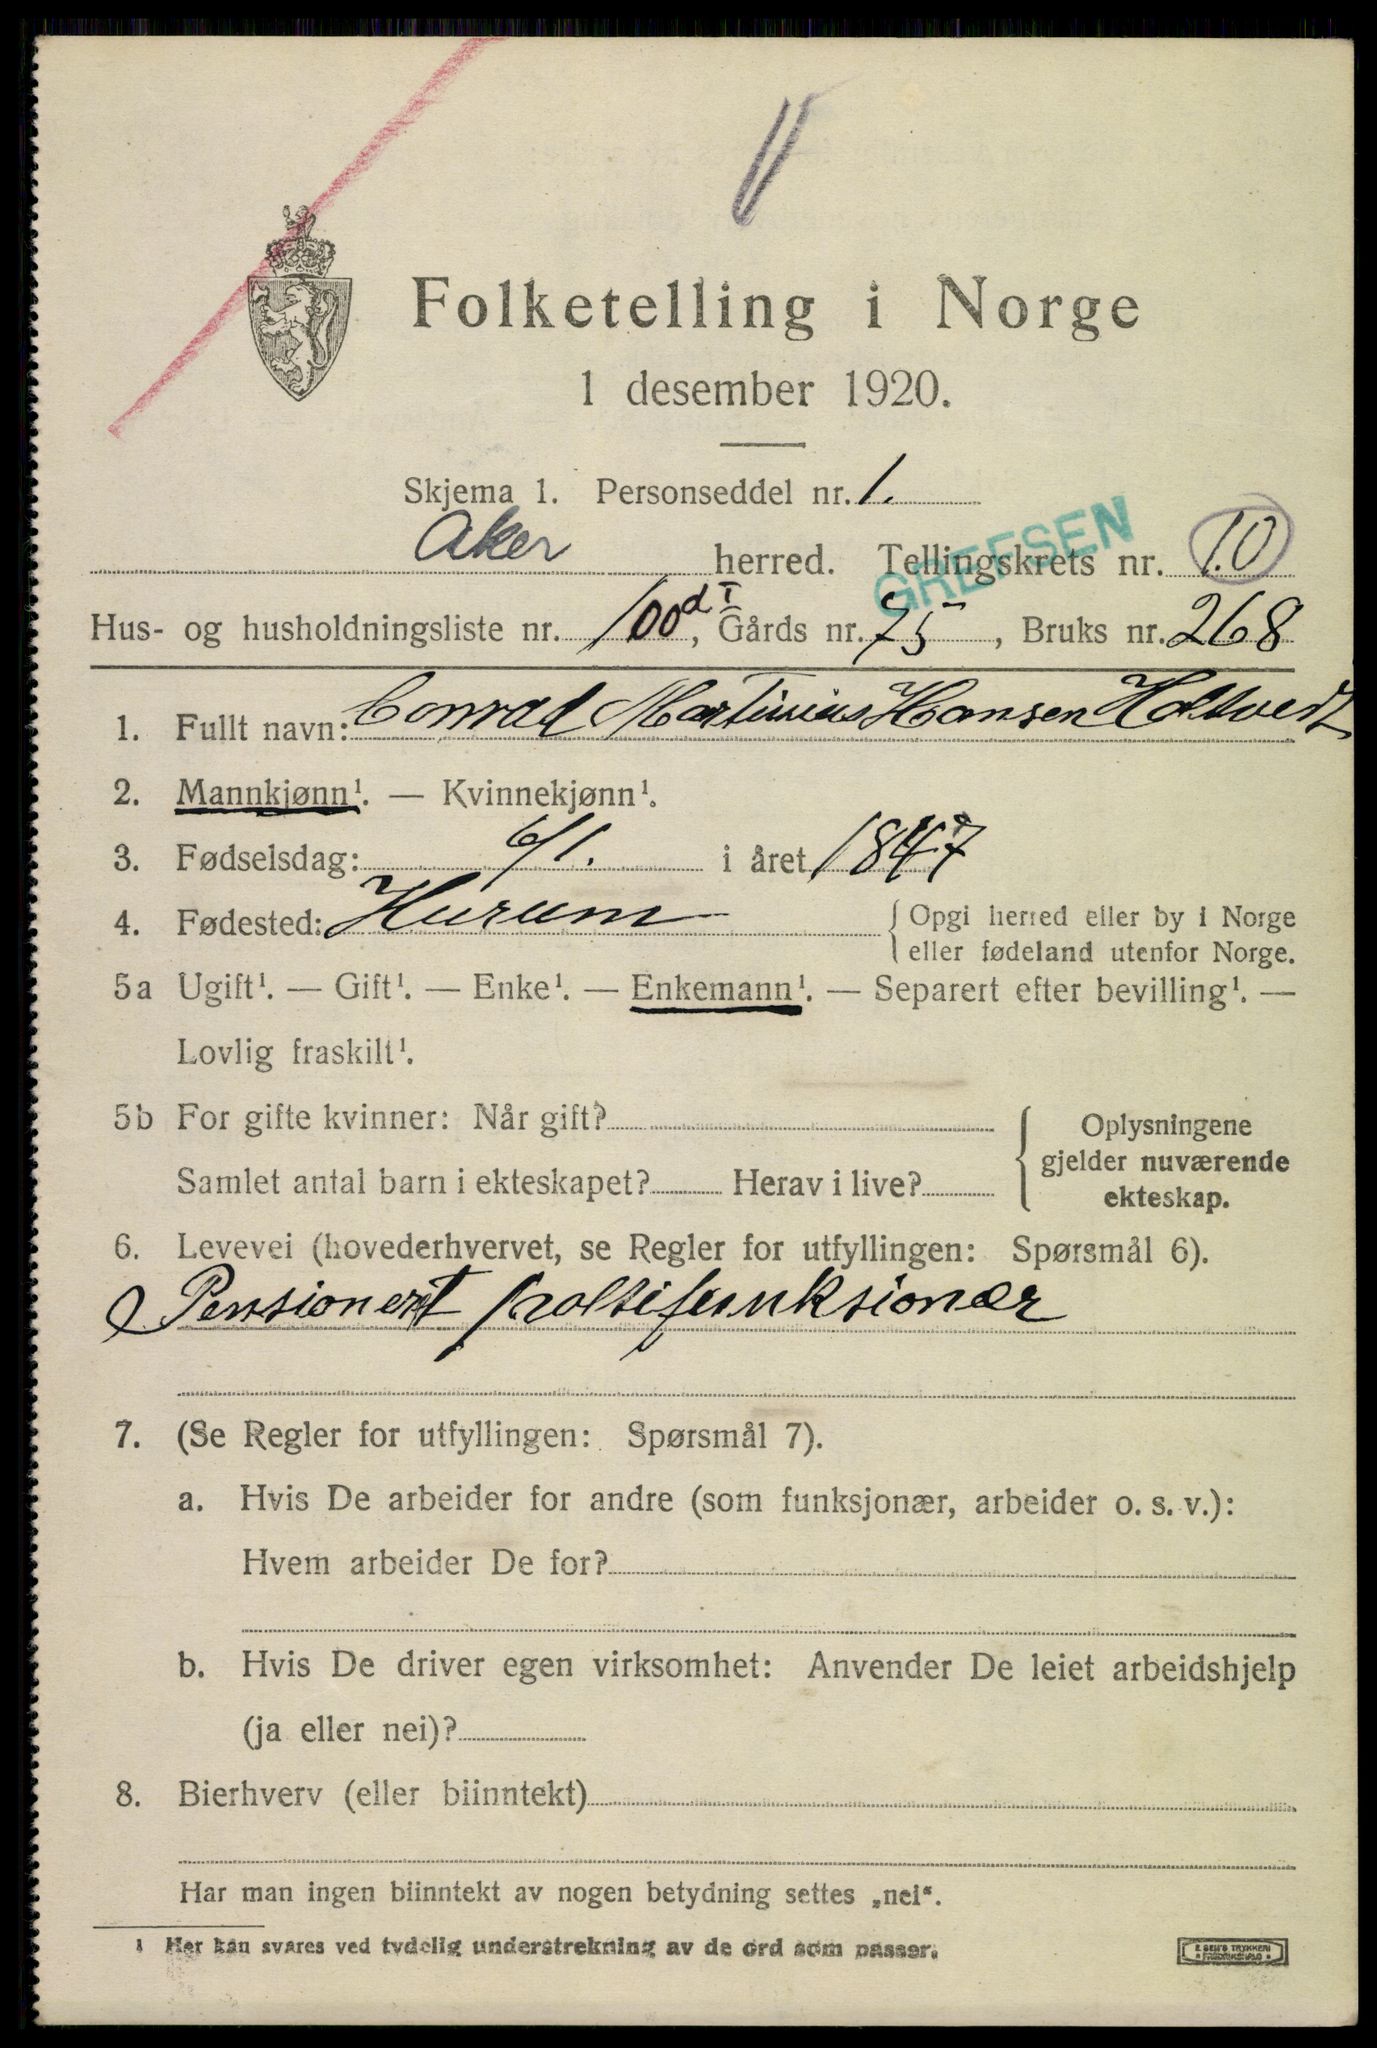 Folketelling i Norge
1 desember 1920.
Skjema 1. Personseddel nr. 1.
Aker herred. Tellingskrets nr. 10
GREFSEN
Hus- og husholdningsliste nr. 100 d I, Gårds nr. 75, Bruks nr. 268
1. Fullt navn: Conrad Martinius Hansen Holtvedt
2. Mannkjønn¹. — Kvinnekjønn¹.
3. Fødselsdag: 6/1. i året 1847
4. Fødested: Hurum { Opgi herred eller by i Norge
eller fødeland utenfor Norge.
5a Ugift¹. — Gift¹. — Enke¹. — Enkemann¹. — Separert efter bevilling¹. —
Lovlig fraskilt¹.
5b For gifte kvinner: Når gift?
Samlet antal barn i ekteskapet? Herav i live?
Oplysningene
gjelder nuværende
ekteskap.
6. Levevei (hovederhvervet, se Regler for utfyllingen: Spørsmål 6).
Pensionert politifunksionær
7. (Se Regler for utfyllingen: Spørsmål 7).
a. Hvis De arbeider for andre (som funksjonær, arbeider o. s. v.):
Hvem arbeider De for?
b. Hvis De driver egen virksomhet: Anvender De leiet arbeidshjelp
(ja eller nei)?
8. Bierhverv (eller biinntekt)
Har man ingen biinntekt av nogen betydning settes „nei“.
¹ Her kan svares ved tydelig understrekning av de ord som passer.
E. SEM'S TRYKKERI
FREDRIKSHALD